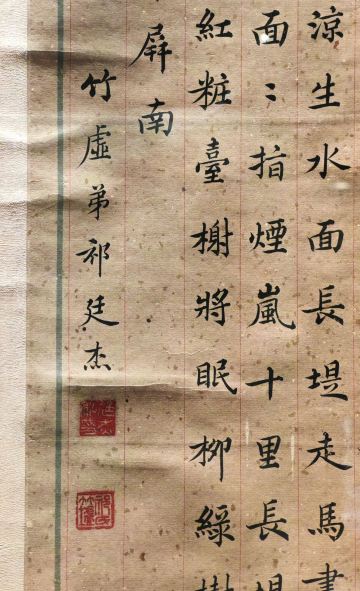 涼生水面長堤走馬
面〻指煙嵐十里長堤
紅粧臺榭將眠柳綠
屏南
竹虛弟祁廷杰